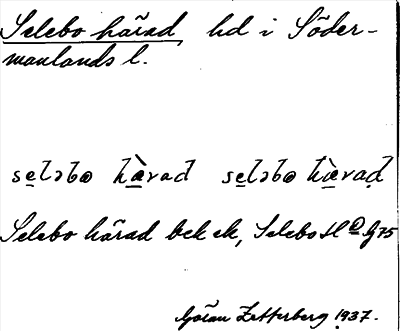 Selebo härad hd i Söder-
manlands l.
se̲ləbo hæ̲̀rad se̲ləbo hæ̲̀raḍ
Selebo härad bek ek, Selebo sl
Göran Zetterberg 1937.